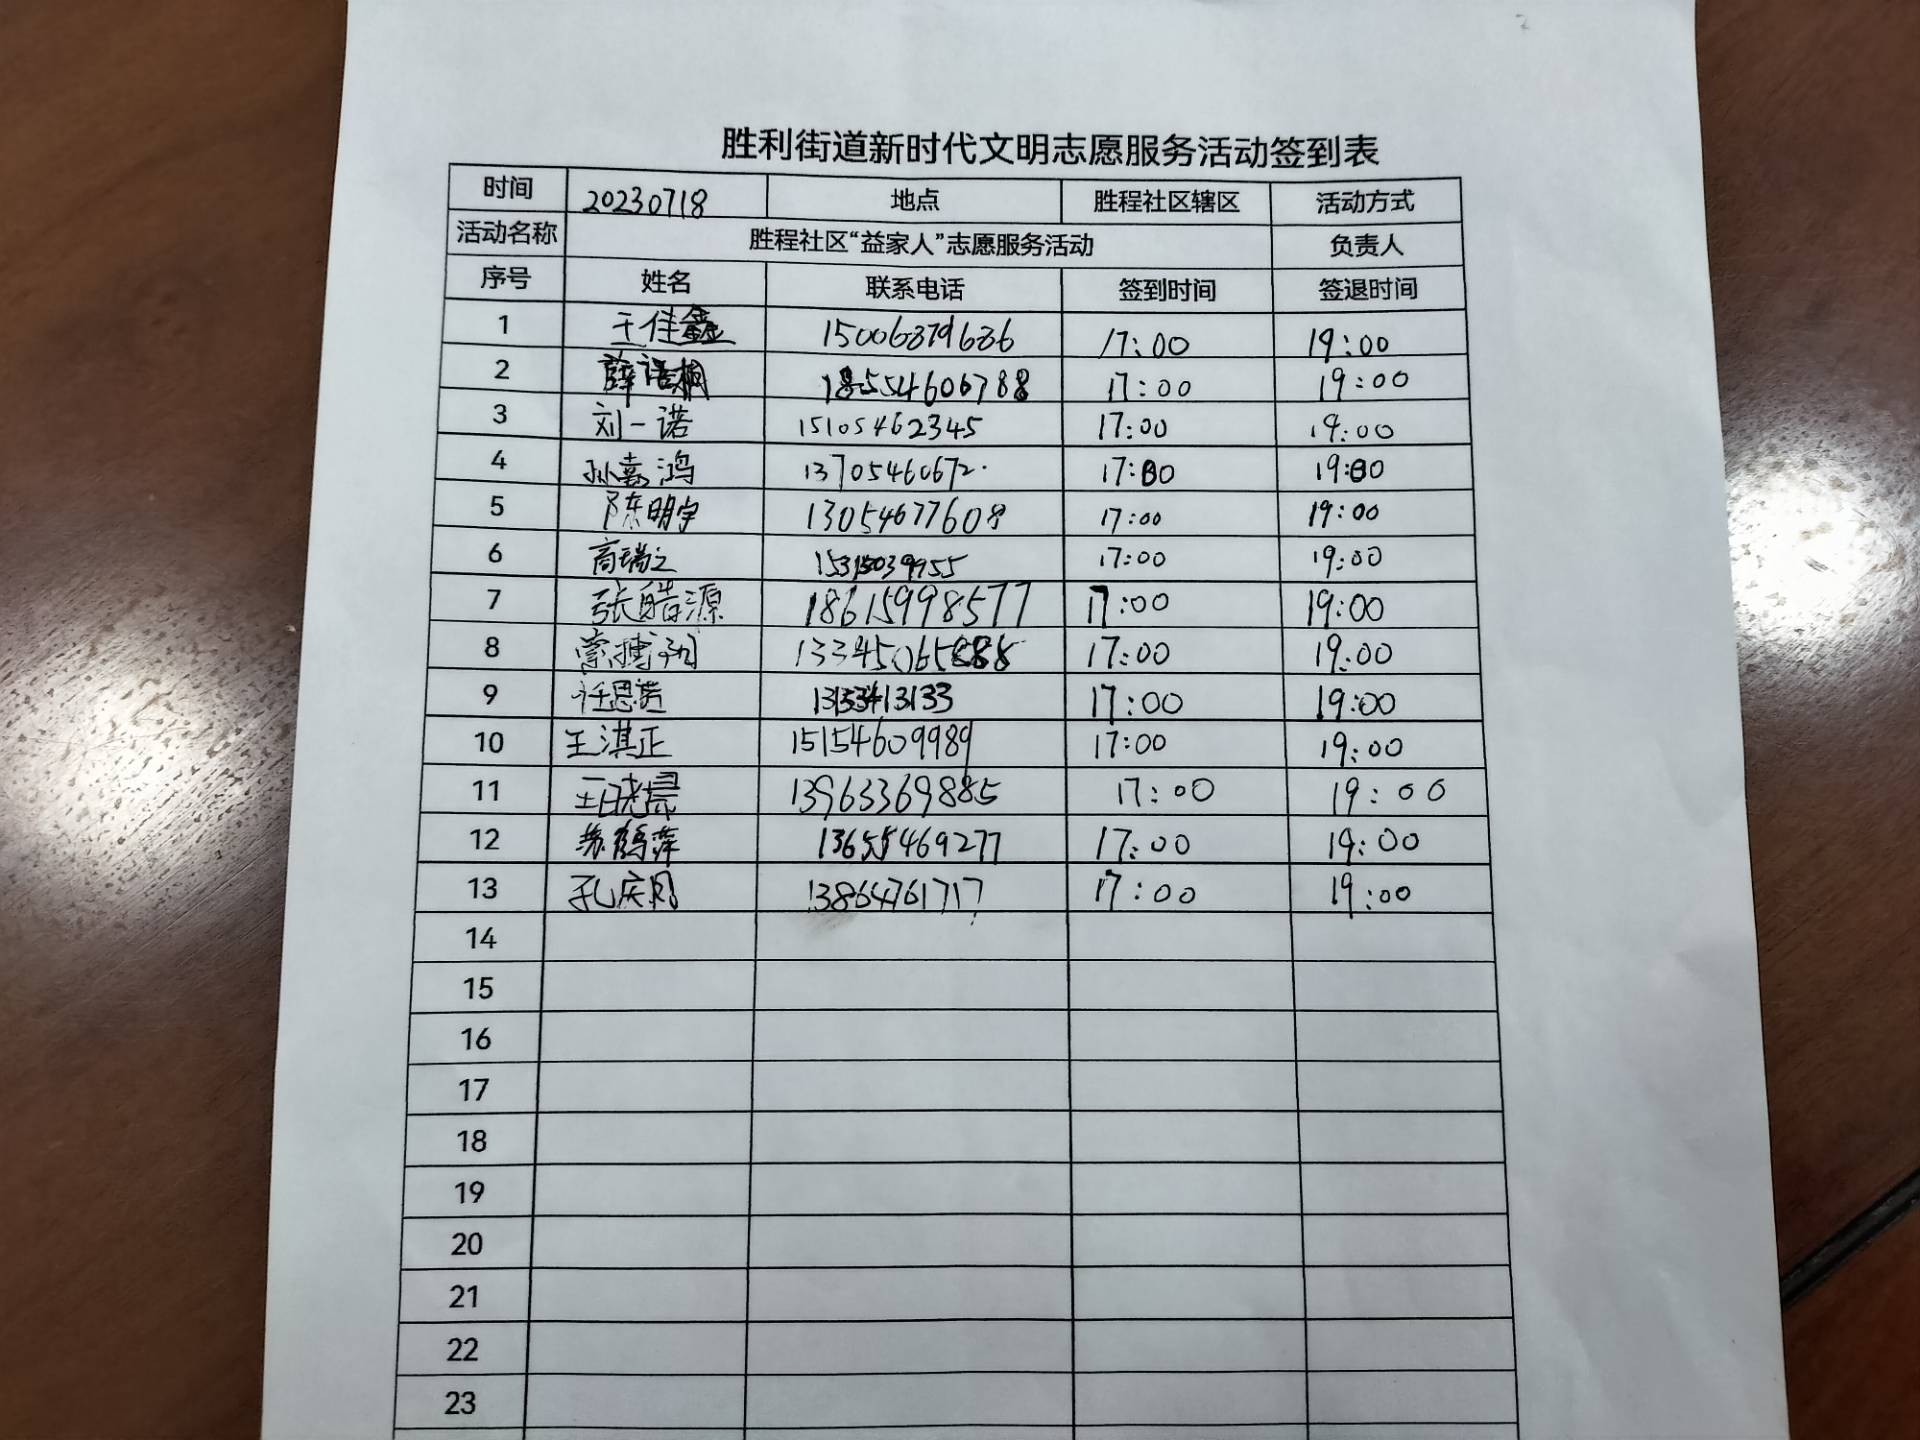 胜利街道新时代文明志愿服务活动签到表
时间 20230718 地点 胜程社区辖区 活动方式
活动名称 胜程社区“益家人”志愿服务活动 负责人
序号 姓名 联系电话 签到时间 签退时间
1 王佳鑫 15006379636 17:00 19:00
2 薛语桐 18554606788 17:00 19:00
3 刘一诺 15105462345 17:00 19:00
4 孙嘉鸿 13705460672 17:00 19:00
5 陈明宇 13054677608 17:00 19:00
6 高瑞之 17:00 19:00
7 张皓源 18615998577 17:00 19:00
8 17:00 19:00
9 17:00 19:00
10 王淇正 15154609989 17:00 19:00
11 13963369885 17:00 19:00
12 苏鹤萍 13655469277 17:00 19:00
13 孔庆月 13864761717 17:00 19:00
14
15
16
17
18
19
20
21
22
23